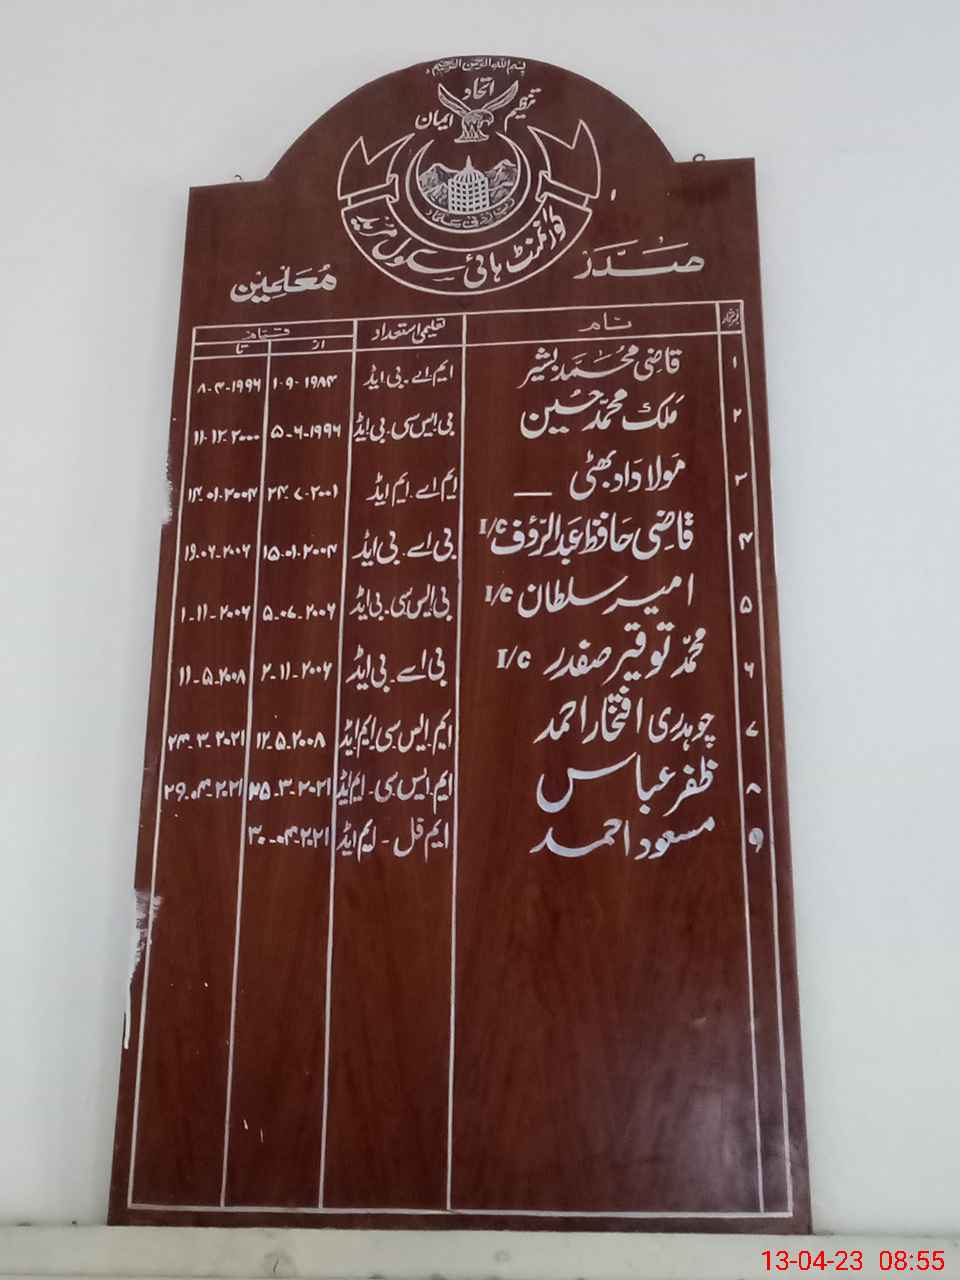 بسم اللہ الرحمن الرحیم
اتحاد
ایمان تنظیم
رب زدنی علما
گورنمنٹ ہائی سکول مرید
صدر معلمین
نمبر شمار نام تعلیمی استعداد قیام
از تا
۱ قاضی محمد بشیر ایم اے۔بی ایڈ ۱-۹-۱۹۸۳ ۸-۳-۱۹۹۶
۲ ملک محمد حسین بی ایس سی۔بی ایڈ ۵-۶-۱۹۹۶ ۱۱-۱۲-۲۰۰۰
۳ مولا داد بھٹی ایم اے۔ایم ایڈ ۲۴-۷-۲۰۰۱ ۱۴-۰۱-۲۰۰۴
۴ قاضی حافظ عبدالرؤف I/C بی اے۔بی ایڈ ۱۵-۰۱-۲۰۰۴ ۱۹-۰۶-۲۰۰۶
۵ امیر سلطان I/C بی ایس سی۔بی ایڈ ۵-۰۷-۲۰۰۶ ۱-۱۱-۲۰۰۶
۶ محمد توقیر صفدر I/C بی اے۔بی ایڈ ۲-۱۱-۲۰۰۶ ۱۱-۵-۲۰۰۸
۷ چوہدری افتخار احمد ایم ایس سی ایم ایڈ ۱۲-۵-۲۰۰۸ ۲۴-۳-۲۰۲۱
۸ ظفر عباس ایم ایس سی۔ایم ایڈ ۲۵-۳-۲۰۲۱ ۲۹-۰۴-۲۰۲۱
۹ مسعود احمد ایم فل - ایم ایڈ ۳۰-۰۴-۲۰۲۱
13-04-23 08:55